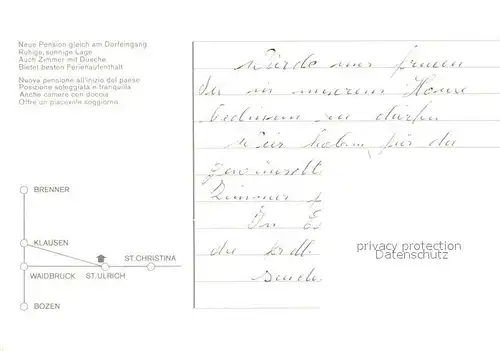 Neue Pension gleich am Dorfeingang
Ruhige, sonnige Lage
Auch Zimmer mit Dusche
Bietet besten Ferienaufenthalt
Nuova pensione all'inizio del paese
Posizione soleggiata e tranquilla
Anche camere con doccia
Offre un piacevole soggiorno
BRENNER
KLAUSEN
ST. CHRISTINA
WAIDBRUCK
ST. ULRICH
BOZEN
Würde uns freuen
Sie in unserem Hause
bedienen zu dürfen
Wir haben für die
gewünscht
Zimmer f
die
privacy protection
Datenschutz